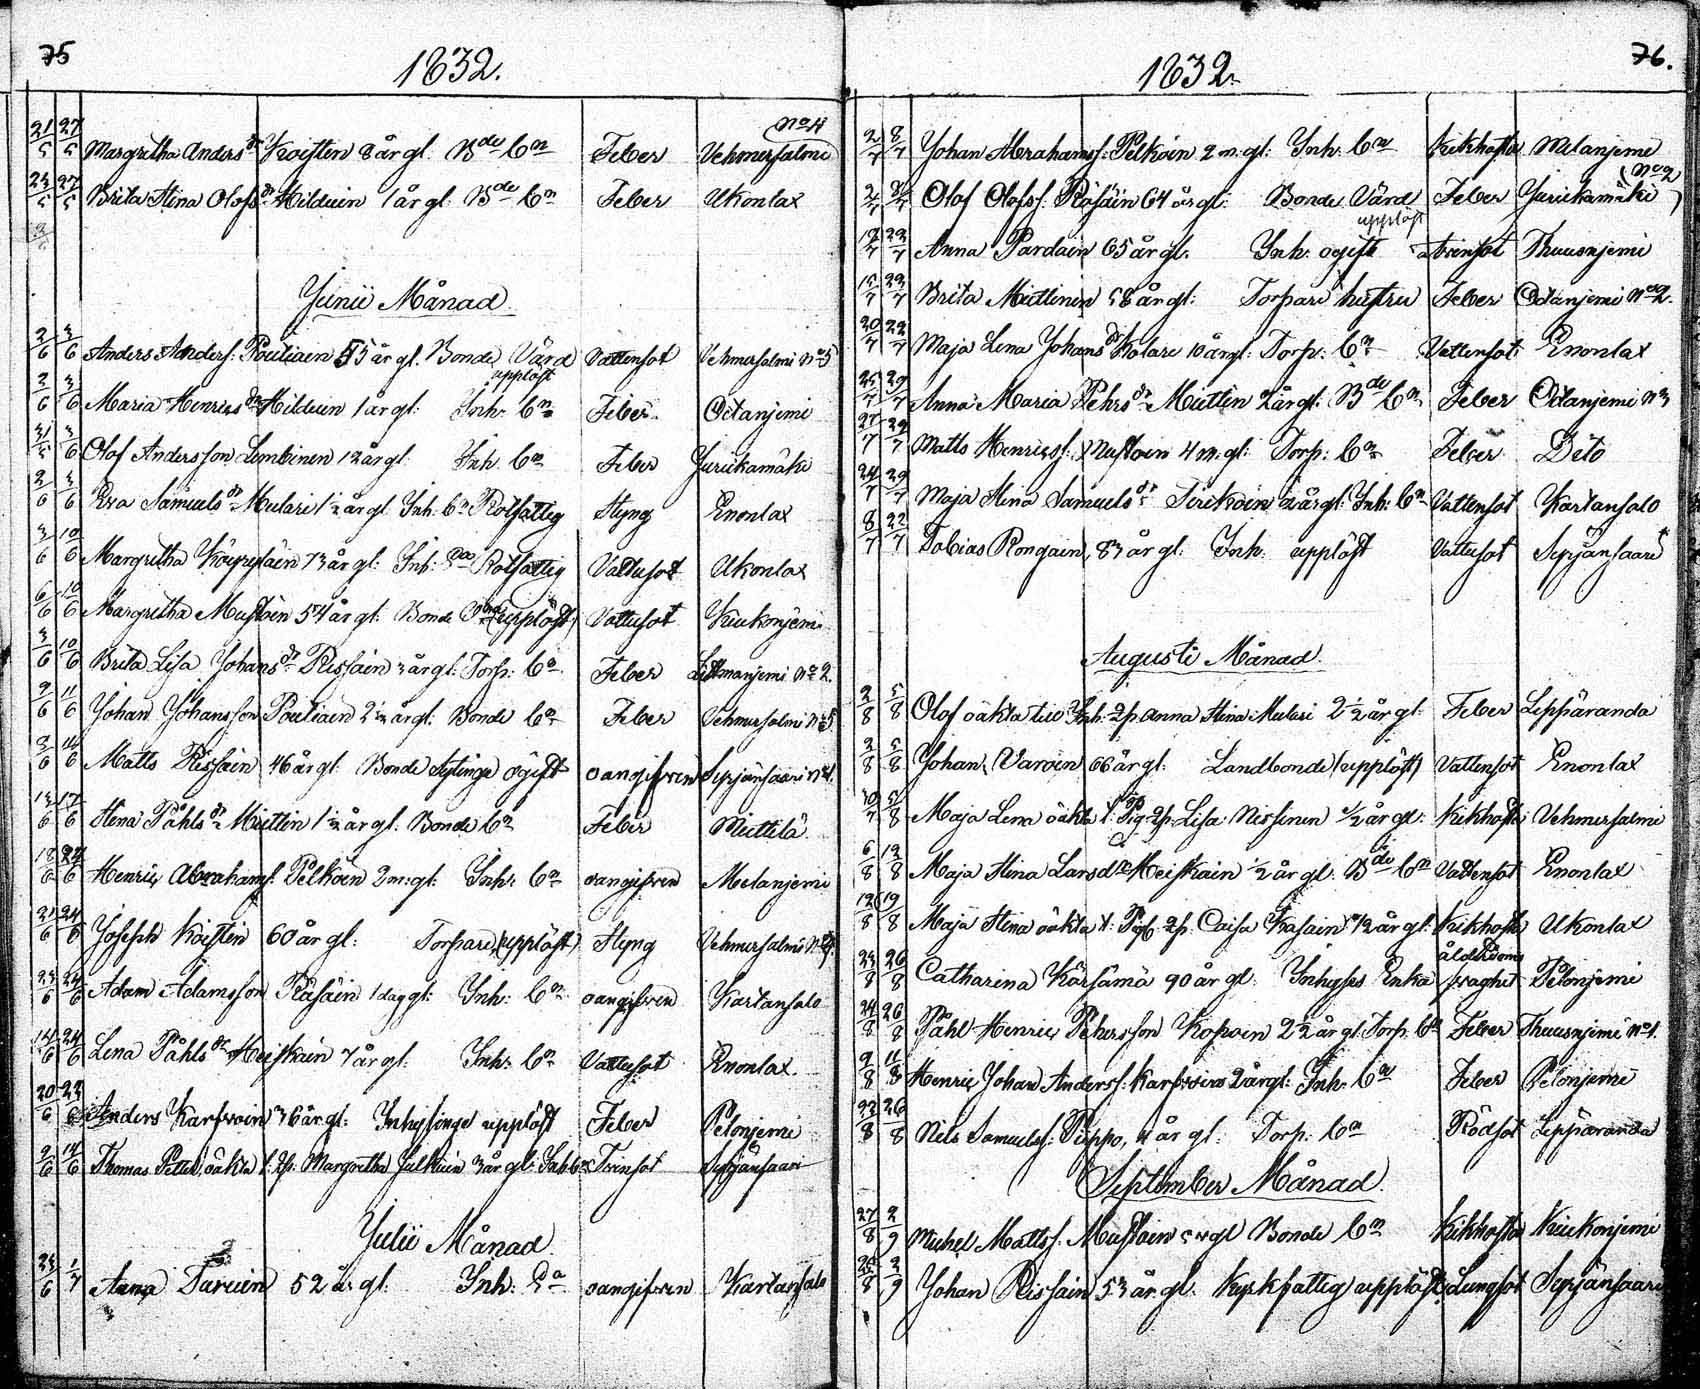 75
1832.
No 4
21/5 27/5 Margretha Anders dr Koisten 8 år gl. Bde bn Feber Vehmersalmi
23/5 27/5 Brita Stina Olofs dr Hilduin 1 år gl. Bde bn Feber Ukonlax
Junii Månad
2/6 3/6 Anders Anders: Pouliain 55 år gl. Bonde Värd Vattensot Vehmersalmi No 5
upplöst
2/6 3/6 Maria Henrics dr Hilduin 1 år gl: Inh: bn Feber Oitanjemi
31/5 3/6 Olof Andersson Lembinen 12 år gl: Inh. bn Feber Jurickamäki
2/6 3/6 Eva Samuels dr Mulari 1 1/2 år gl. Inh: bn Rotfattig Styng Enonlax
3/6 10/6 Margretha 73 år gl: Inh: Rotfattig Vattusot Ukonlax
6/6 10/6 Margretha Mustoin 54 år gl: Bonde (upplöst) Vattusot Kiukonjemi
3/6 10/6 Brita Lisa Johans dr Rissain 3 år gl: Torp: bn Feber Littmanjemi No 2.
9/6 11/6 Johan Johansson Pouliain 2 1/2 år gl: Bonde bn Feber Vehmersalmi No 5
8/6 14/6 Matts Rissain 46 år gl: Bonde Sytinge ogift oangifven Syvjänsaari No 4.
13/6 17/6 Stena Påhls dr Miettin 1 1/2 år gl: Bonde bn Feber Miettilä
18/6 24/6 Henric Abrahams: Pelkoin 2 m: gl: Inh: bn oangifven Melanjemi
21/6 24/6 Joseph Koisten 60 år gl: Torpare, (upplöst) Styng Vehmersalmi
23/6 24/6 Adam Adamsson Räsäin 1 dag gl: Inh: bn oangifven Kartansalo
14/6 24/6 Lena Påhls dr Heiskain 7 år gl: Inh: bn Vattusot Enonlax
20/6 23/6 Anders Karfvoin 36 år gl: Inhysinge upplöst Feber Pelonjemi
9/6 14/6 Thomas Petter, oäkta t: 2p. Margretha Julkuin 3 år gl: Inh bn Tvinsot Syvjänsaari
Julii Månad
23/6 1/7 Anna Taruin 52 år gl. Inh: oangifven Kartansalo
76.
1832.
2/7 8/7 Johan Abrahams: Pelkoin 2 m: gl: Inh: bn Kikhosta Melanjemi
(No 2)
2/7 8/7 Olof Olofs: Räsäin 64 år gl: Bonde Värd Feber Jurickamäki
upplöst
22/7 Anna Pardain 65 år gl. Inh: ogift Tvinsot Thuusnjemi
15/7 22/7 Brita Miettinen 58 år gl: Torpare hustru Feber Oitanjemi No 2.
20/7 22/7 Maja Lena Johans dr Kolari 10 år gl: Torp: bn Vattensot Enonlax
25/7 29/7 Anna Maria Pehrs dr Miettin 2 år gl: Bde bn Feber Oitanjemi No 3
27/7 29/7 Matts Henrics: Mustoin 4 m: gl: Torp: bn Feber Dito
24/7 29/7 Maja Stina Samuels dr Tirikoin 2 år gl: Inh: bn Vattensot Kartansalo
8/7 22/7 Tobias Rongain, 83 år gl: Inh: upplöst Vattusot Syvjänsaari
Augusti Månad
2/8 5/8 Olof oäkta Inh: 2p. Anna Stina Mulari 2 1/2 år gl: Feber Leppäranda
2/8 5/8 Johan Varoin 66 år gl: Landbonde (upplöst) Vattensot Enonlax
30/7 5/8 Maja Lena oäkta t: Pig: 2p. Lisa Nissinen 1/2 år gl: Kikhosta Vehmersalmi
6/8 12/8 Maja Stina Lars dr Heiskain 1/2 år gl. Bde bn Vattensot Enonlax
12/8 19/8 Maja Stena oäkta t: Pig: 2p. Caisa Kasain 1/2 år gl: Kikhosta Ukonlax
23/8 26/8 Catharina Kärsämä 90 år gl: Inhyses Enka ålderdoms svaghet Pelonjemi
24/8 26/8 Påhl Henric Pehrsson Kosoin 2 1/2 år gl: Torp: bn Feber Thuusnjemi No 1.
9/8 11/8 Henric Johan Anders: Karfvoin 2 år gl: Inh: bn Feber Pelonjemi
23/8 26/8 Nils Samuels: Pieppo, 4 år gl: Torp: bn Rödsot Leppäranda
September Månad.
27/8 2/9 Michel Matts: Mustoin 5 v gl Bonde bn Kikhosta Kiukonjemi
25/8 2/9 Johan Rissain 53 år gl: Kyrkfattig upplöst Lungsot Syvjänsaari